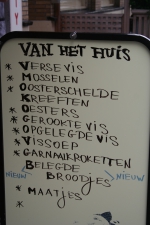 VAN HET HUIS
* VERSE VIS
* MOSSELEN
* OOSTERSCHELDE
KREEFTEN
* OESTERS
* GEROOKTE VIS
* OPGELEGDE VIS
* VISSOEP
* GARNAALKROKETTEN
* BELEGDE
NIEUW BROODJES NIEUW
* MAATJES
*